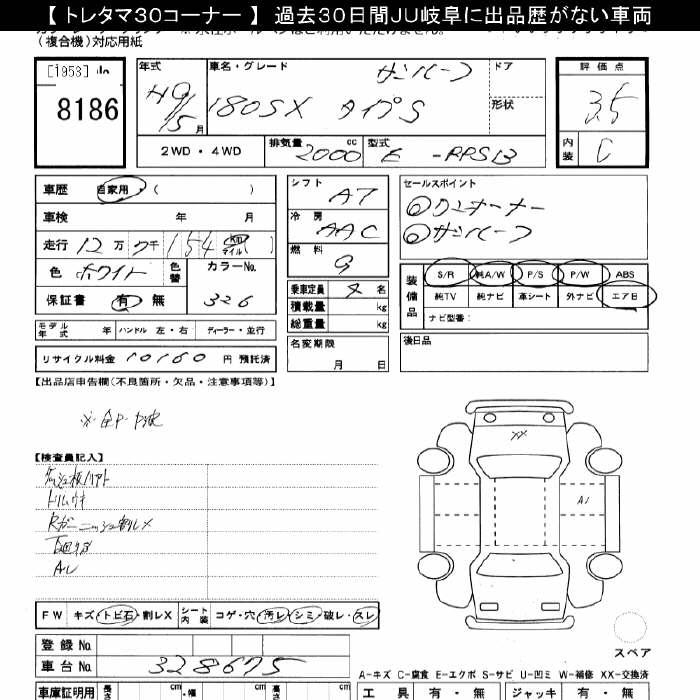 【トレタマ30コーナー】 過去30日間JU岐阜に出品歴がない車両
(複合機)対応用紙
[1953]
8186
年式 H9/5月
車名・グレード サンルーフ
180SX タイプS
ドア
形状
評価点 3.5
内装 C
2WD・4WD 排気量 2000 cc 型式 E-RPS13
車歴 自家用 ( )
車検 年 月
走行 12万 7千 154 km マイル ( )
色 ホワイト 色替 カラーNo. 326
保証書 有 無
シフト AT
冷房 AAC
燃料 G
乗車定員 4 名
積載量 kg
総重量 kg
名変期限 月 日
セールスポイント
◎ワンオーナー
◎サンルーフ
装備品 S/R 純A/W P/S P/W ABS
純TV 純ナビ 革シート 外ナビ エアB
ナビ型番:
後日品
モデル年式 年 ハンドル 左・右 ディーラー・並行
リサイクル料金 10160 円 預託済
【出品店申告欄(不良箇所・欠品・注意事項等)】
【検査員記入】
トリムウキ
A1
FW キズ・トビ石・割レX シート内装 コゲ・穴・汚レ・シミ・破レ・スレ
登録No.
車台No. 328675
スペア
A-キズ C-腐食 E-エクボ S-サビ U-凹ミ W-補修 XX-交換済
車庫証明用 長さ cm ・幅 cm cm
工具 有・無 ジャッキ 有・無